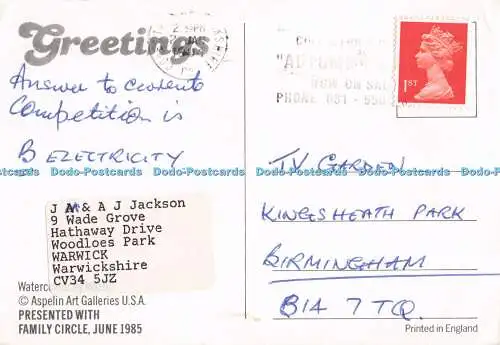 Greetings
Answer to cworento
Competition is
B ELECTRICITY
J M & A J Jackson
9 Wade Grove
Hathaway Drive
Woodloes Park
WARWICK
Warwickshire
CV34 5JZ
© Aspelin Art Galleries U.S.A.
PRESENTED WITH
FAMILY CIRCLE, JUNE 1985
NOW ON SAL
PHONE 081 - 950
1ST
T.V. GARDEN
KINGSHEATH PARK
BIRMINGHAM
B14 7TQ.
Printed in England
Dodo-Postcards Dodo-Postcards Dodo-Postcards Dodo-Postcards Dodo-Postcards Dodo-Postcards